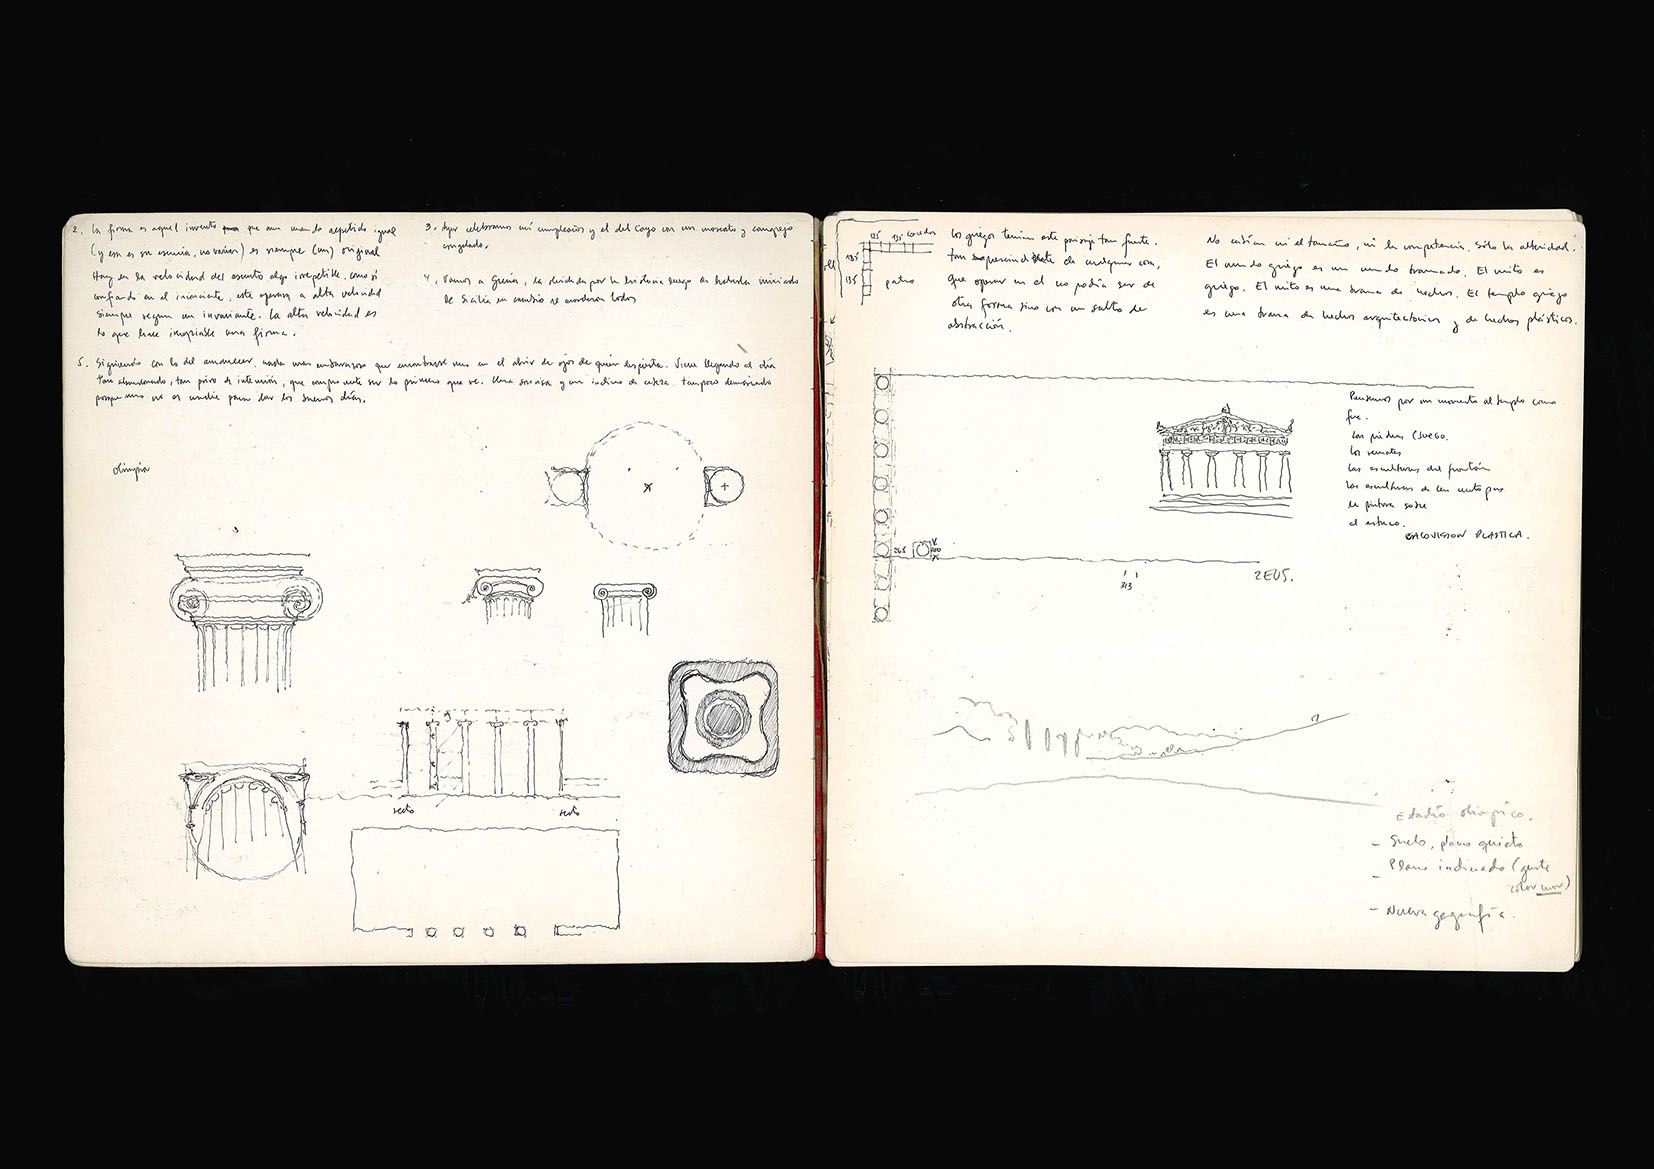 2. La firma es aquel invento que aun cuando repetido igual
(y esa es su esencia, no variar) es siempre (un) original
Hay en la velocidad del asunto algo irrepetible. como si
confiando en el inconciente, este operase a alta velocidad
siempre segun un invariante. La alta velocidad es
lo que hace incopiable una firma.
3. Ayer celebramos mi cumpleaños y el del Cayo con un moscato y
congelado.
4. Vamos a Grecia, La decidida por la historia luego de haberla iniciado
de Sicilia en cambio se acordaron todos
5. Siguiendo con lo del amanecer, nada mas embarazoso que encontrarse uno en el abrir de ojos de quien despierta. Viene llegando al día
tan abandonado, tan privo de intención, que compromete ser lo primero que ve. Una sonrisa y un inclino de cabeza. tampoco demasiado
porque uno no es nadie para dar los buenos días.
olimpia
recto
recto
125 135 corredor
135
135
patio
Los griegos tenían este paisaje tan fuerte.
tan de cualquier cosa,
que operar en el no podía ser de
otra forma sino con un salto de
abstracción.
No cabían ni el tamaño, ni la competencia. Sólo la alteridad.
El mundo griego es un mundo tramado. El mito es
griego. El mito es una trama de hechos. El templo griego
es una trama de hechos arquitectónicos y de hechos plásticos.
Pensemos por un momento al templo como
fue.
Las piedras (Juego.
los remates
las esculturas del frontón
las esculturas de
la pintura sobre
el estuco.
PLASTICA.
265
200
313
ZEUS.
Estadio olimpico.
- Suelo, plano quieto
- Plano inclinado (gente
color mar)
- Nueva geografía.